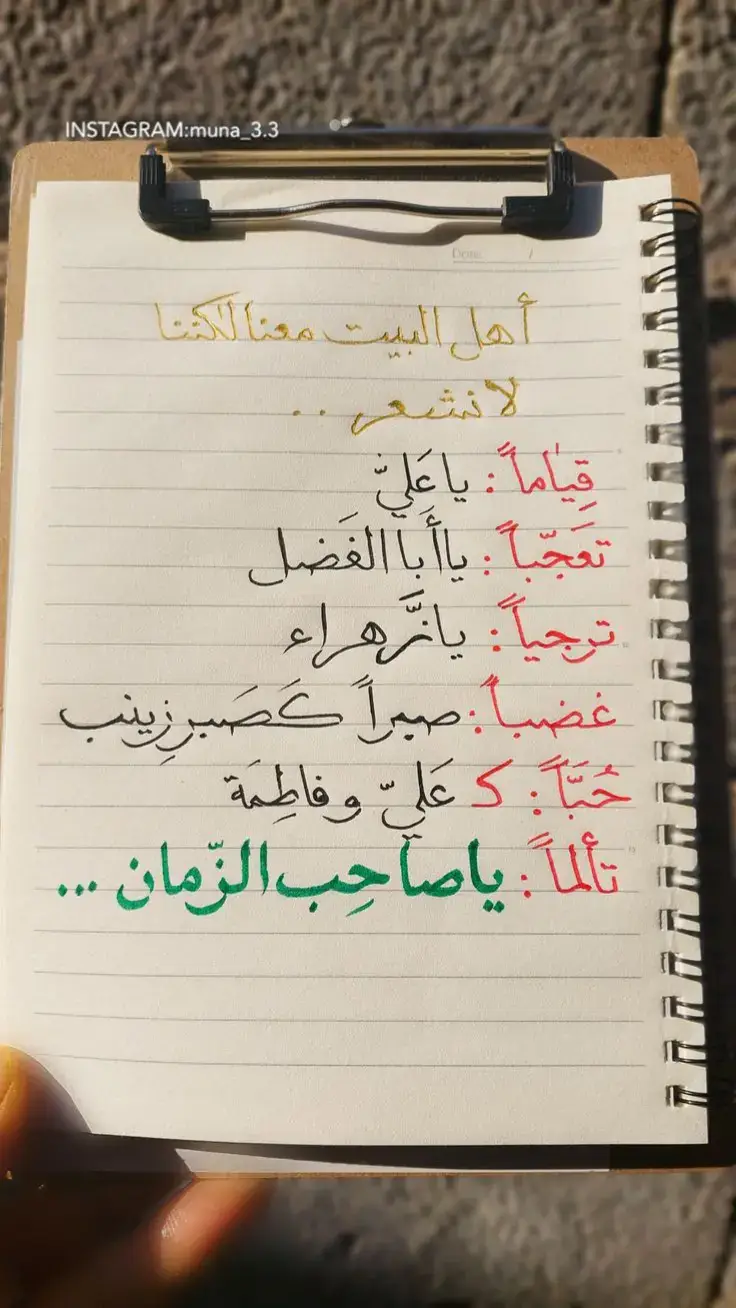 INSTAGRAM:muna_3.3
Date: /
أهل البيت معنا لكننا
لا نشعر ..
قِياماً : يا عَليّ
تعَجّباً : يا أَبا الفَضل
ترجياً : يا زَّهراء
غضباً : صبراً كَصَبرِ زينب
حُبَّاً : كـ عَليّ و فاطِمَة
تألماً : يا صاحِب الزّمان ...